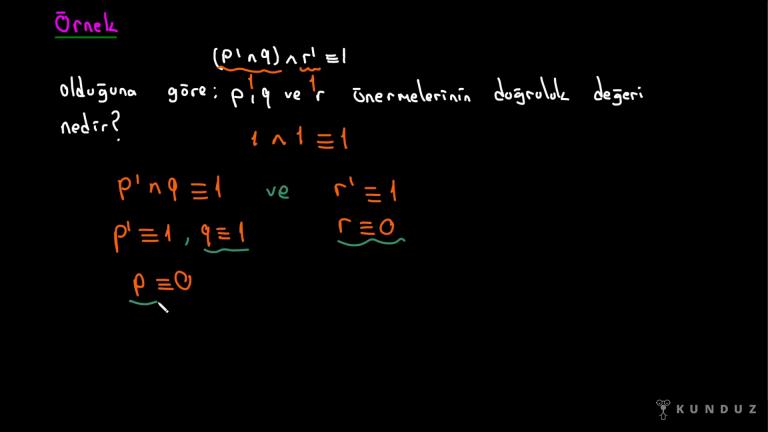 Örnek
(p' ∧ q) ∧ r' ≡ 1
1 1
olduğuna göre; p, q ve r önermelerinin doğruluk değeri
nedir?
1 ∧ 1 ≡ 1
p' ∧ q ≡ 1 ve r' ≡ 1
p' ≡ 1, q ≡ 1 r ≡ 0
p ≡ 0
KUNDUZ